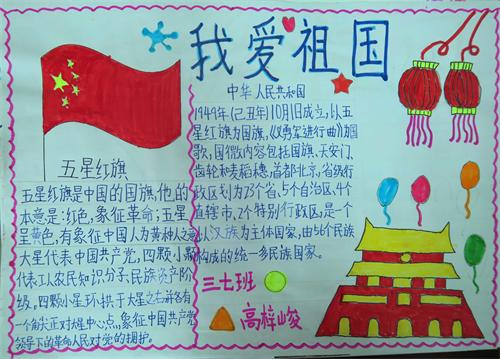 我爱祖国
中华人民共和国
1949年(己丑年)10月1日成立,以五
星红旗为国旗,《义勇军进行曲》为国
歌,国徽内容包括国旗、天安门、
齿轮和麦稻穗,首都北京,省级行
政区划为23个省、5个自治区、4个
直辖市、2个特别行政区,是一个
以汉族为主体国家,由56个民族
构成的统一多民族国家。
五星红旗
五星红旗是中国的国旗,他的
本意是:红色,象征革命;五星
呈黄色,有象征中国人为黄种人之意
大星代表中国共产党,四颗小星
代表工人农民知识分子、民族资产阶
级。四颗小星环拱于大星之右并各有
一个角尖正对大星中心点,象征中国共产党
领导下的革命人民对党的拥护。
三七班
高梓峻